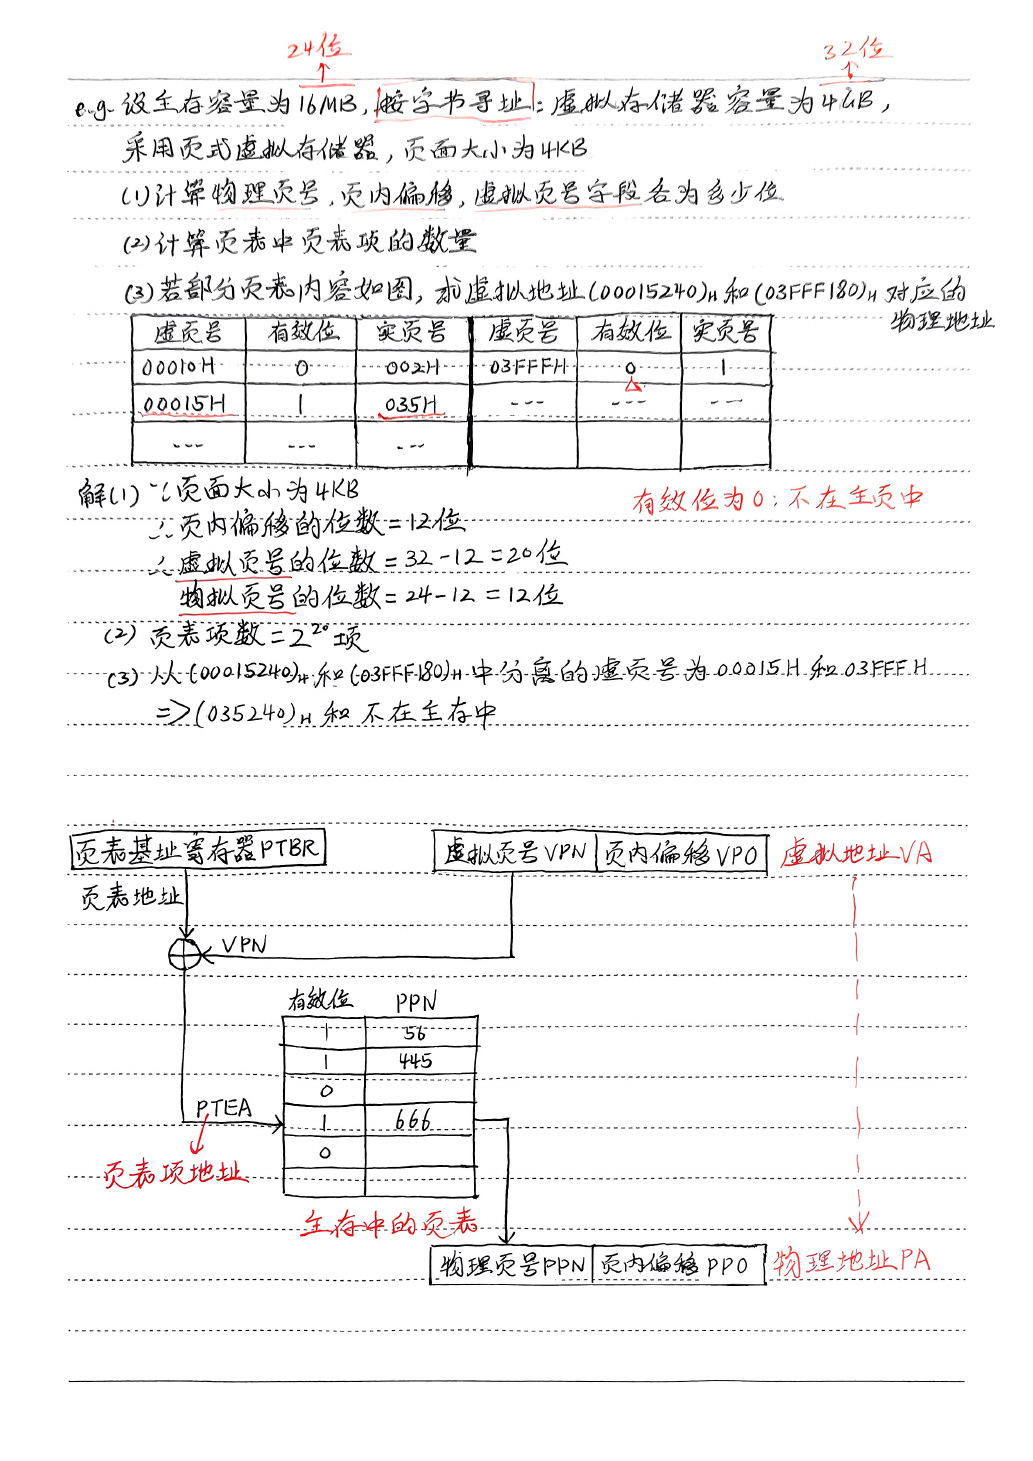 24位 32位
e.g. 设主存容量为16MB，按字节寻址；虚拟存储器容量为4GB，
采用页式虚拟存储器，页面大小为4KB
(1)计算物理页号，页内偏移，虚拟页号字段各为多少位
(2)计算页表中页表项的数量
(3)若部分页表内容如图，求虚拟地址(00015240)H和(03FFF180)H对应的
物理地址
虚页号 有效位 实页号 虚页号 有效位 实页号
00010H 0 002H 03FFFH 0 1
00015H 1 035H --- --- ---
--- --- ---
解(1) ∵页面大小为4KB
有效位为0：不在主页中
∴页内偏移的位数=12位
∴虚拟页号的位数=32-12=20位
物拟页号的位数=24-12=12位
(2) 页表项数=2²⁰项
(3) 从(00015240)H和(03FFF180)H中分离的虚页号为00015H和03FFFH
=>(035240)H和不在主存中
页表基址寄存器PTBR 虚拟页号VPN 页内偏移VPO 虚拟地址VA
页表地址
VPN
有效位 PPN
1 56
1 445
0
PTEA 1 666
0
页表项地址
主存中的页表
物理页号PPN 页内偏移PPO 物理地址PA